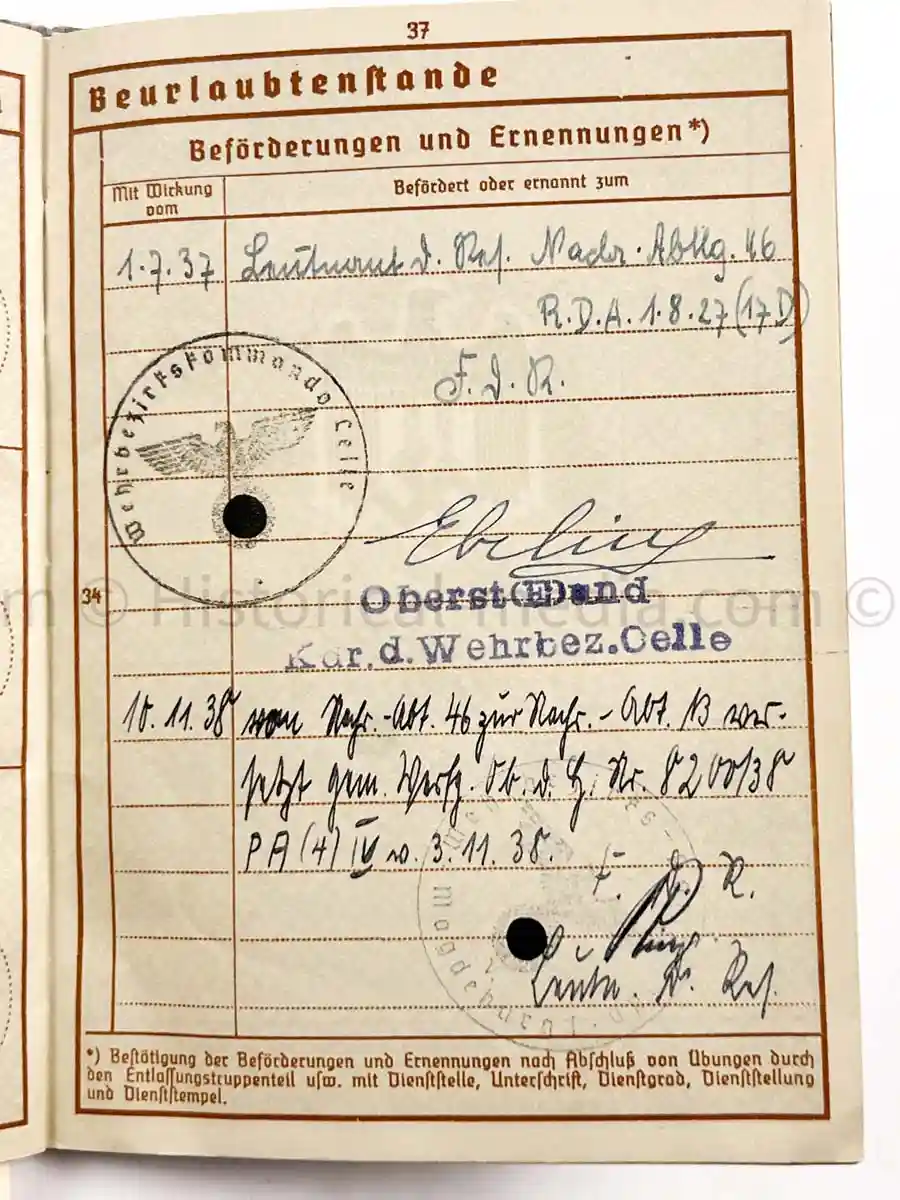 37
Beurlaubtenstande
Beförderungen und Ernennungen*)
Mit Wirkung vom
Befördert oder ernannt zum
1.7.37 Leutnant d. Res. Nachr.-Abtlg. 46
R.D.A. 1.8.27 (17D)
F. d. R.
Wehrbezirkskommando Celle
Ebeling
Oberst(E)und
Kdr.d.Wehrbez.Celle
34
10.11.38 von Nachr.-Abt. 46 zur Nachr.-Abt. B ver-
setzt gem. Verfg. Ob. d. H. Nr. 8200/38
PA (4) IV v. 3.11.38.
F. d. R.
Leutn. d. Res.
Magdeburg
*) Bestätigung der Beförderungen und Ernennungen nach Abschluß von Übungen durch
den Entlassungstruppenteil usw. mit Dienststelle, Unterschrift, Dienstgrad, Dienststellung
und Dienststempel.
m © Historical-media.com ©